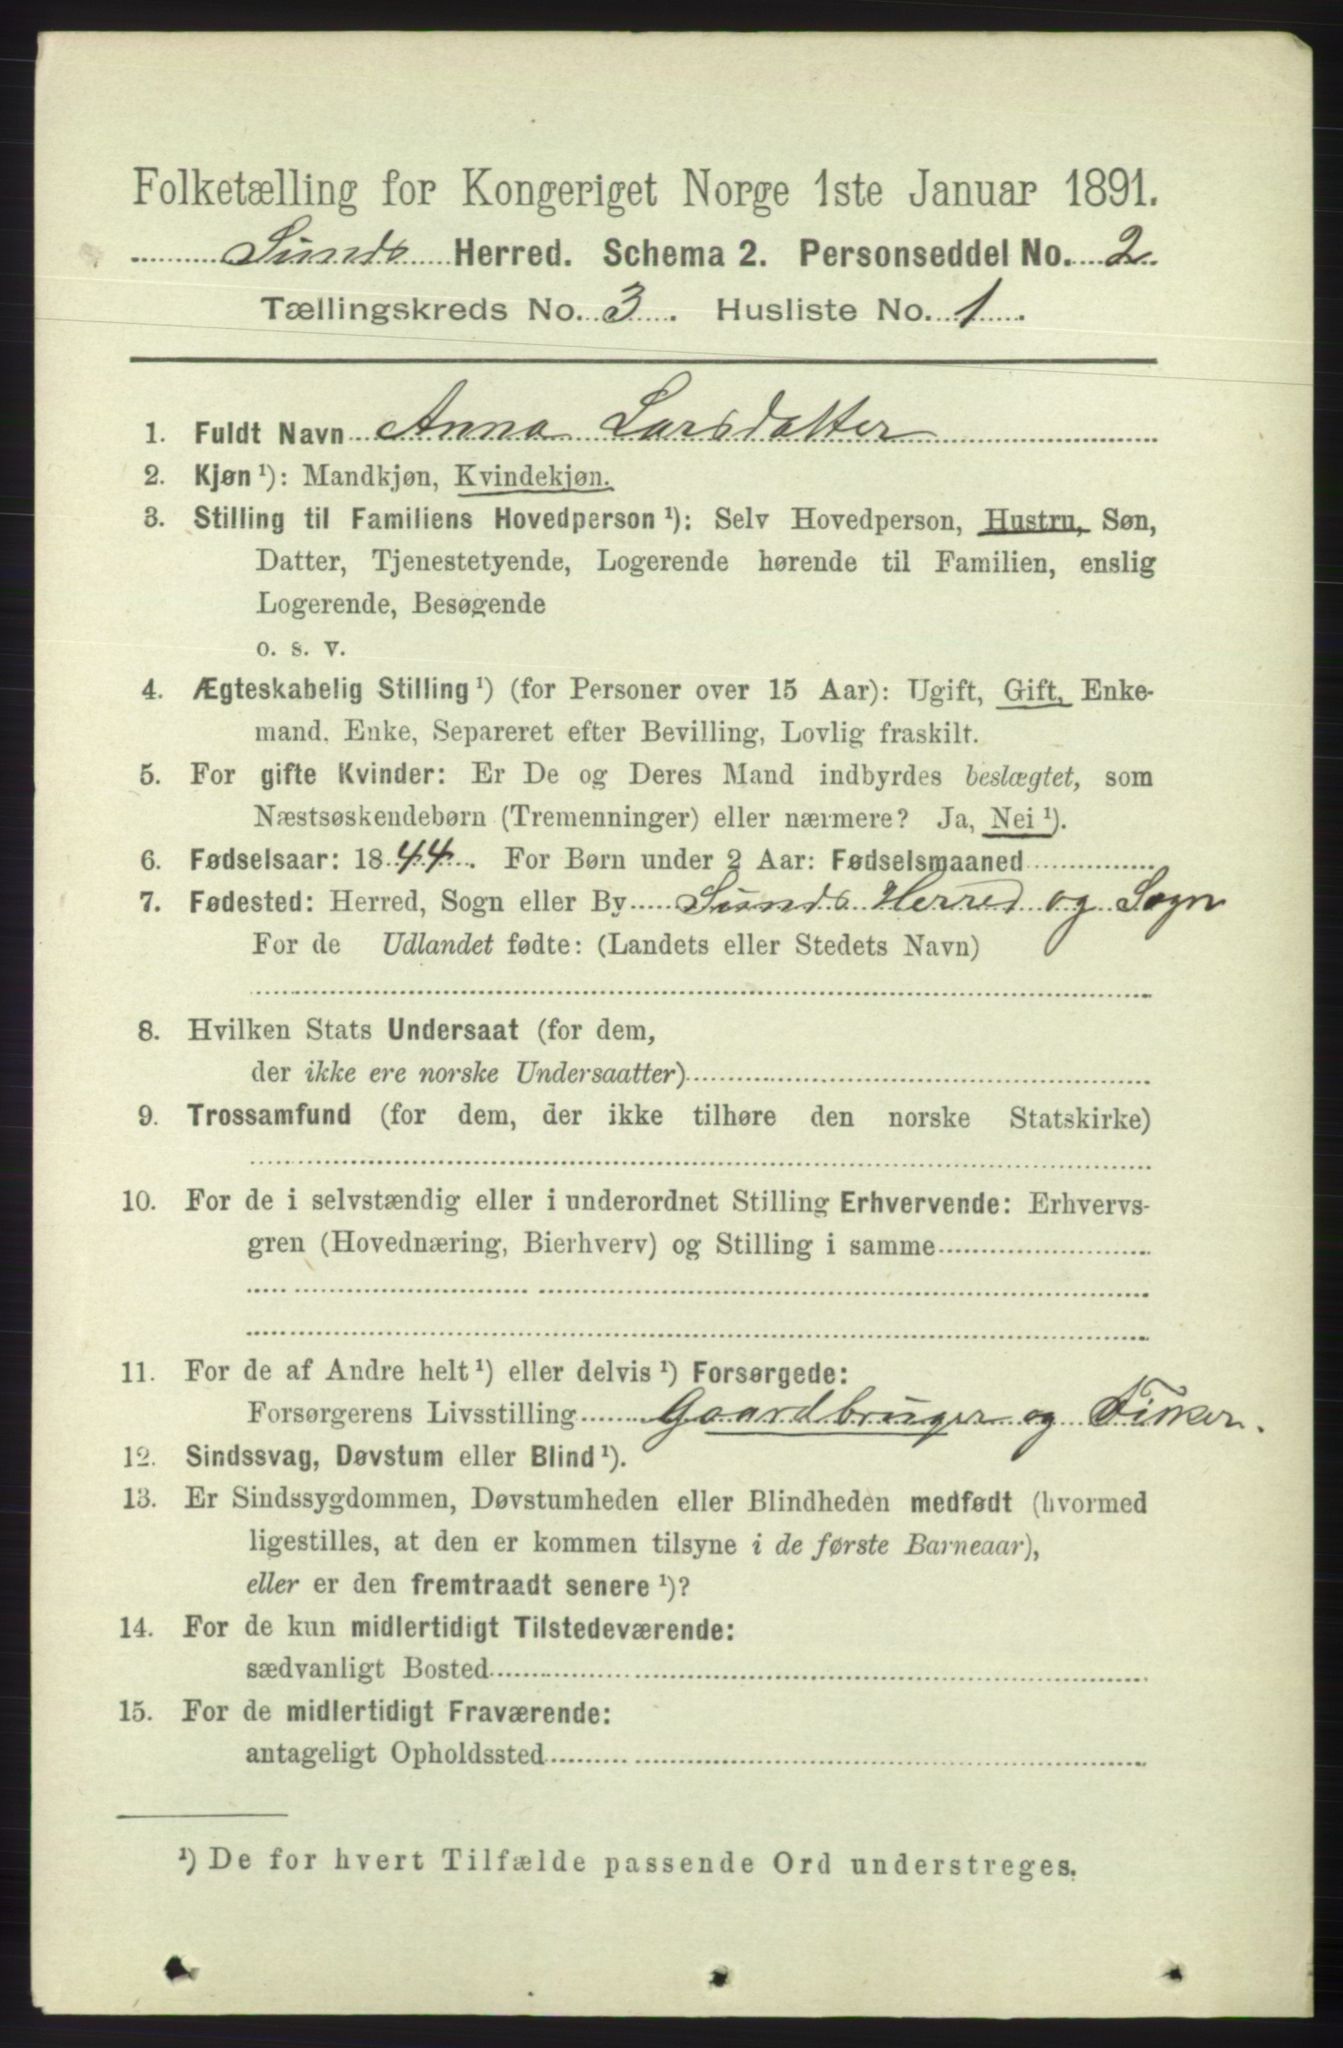 Folketælling for Kongeriget Norge 1ste Januar 1891.
Sunds Herred. Schema 2. Personseddel No. 2
Tællingskreds No. 3. Husliste No. 1.
1. Fuldt Navn Anna Larsdatter
2. Kjøn ¹): Mandkjøn, Kvindekjøn.
3. Stilling til Familiens Hovedperson ¹): Selv Hovedperson, Hustru, Søn,
Datter, Tjenestetyende, Logerende hørende til Familien, enslig
Logerende, Besøgende
o. s. v.
4. Ægteskabelig Stilling ¹) (for Personer over 15 Aar): Ugift, Gift, Enke-
mand, Enke, Separeret efter Bevilling, Lovlig fraskilt.
5. For gifte Kvinder: Er De og Deres Mand indbyrdes beslægtet, som
Næstsøskendebørn (Tremenninger) eller nærmere? Ja, Nei ¹).
6. Fødselsaar: 1844. For Børn under 2 Aar: Fødselsmaaned
7. Fødested: Herred, Sogn eller By Sunds Herred og Sogn
For de Udlandet fødte: (Landets eller Stedets Navn)
8. Hvilken Stats Undersaat (for dem,
der ikke ere norske Undersaatter)
9. Trossamfund (for dem, der ikke tilhøre den norske Statskirke)
10. For de i selvstændig eller i underordnet Stilling Erhvervende: Erhvervs-
gren (Hovednæring, Bierhverv) og Stilling i samme
11. For de af Andre helt ¹) eller delvis ¹) Forsørgede:
Forsørgerens Livsstilling Gaardbruger og Fisker.
12. Sindssvag, Døvstum eller Blind ¹).
13. Er Sindssygdommen, Døvstumheden eller Blindheden medfødt (hvormed
ligestilles, at den er kommen tilsyne i de første Barneaar),
eller er den fremtraadt senere ¹)?
14. For de kun midlertidigt Tilstedeværende:
sædvanligt Bosted
15. For de midlertidigt Fraværende:
antageligt Opholdssted
¹) De for hvert Tilfælde passende Ord understreges.